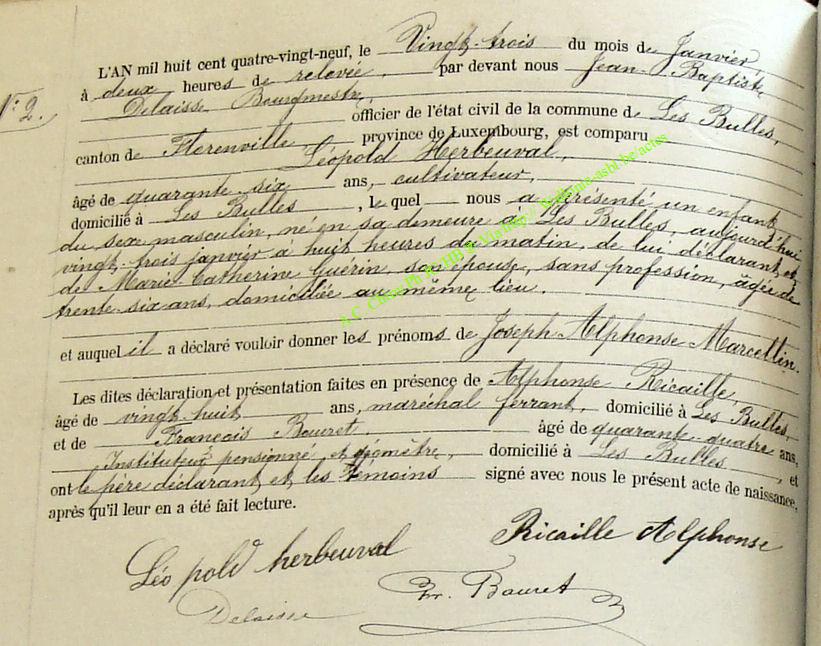 L'AN mil huit cent quatre-vingt-neuf, le Vingt-trois du mois de Janvier,
à deux heures de relevée, par devant nous Jean-Baptiste
N° 2. Delaisse Bourgmestre,
officier de l'état civil de la commune de Les Bulles,
canton de Florenville, province de Luxembourg, est comparu
Léopold Herbeuval,
âgé de quarante-six ans, cultivateur,
domicilié à Les Bulles, le quel nous a présenté un enfant
du sexe masculin, né en sa demeure à Les Bulles, aujourd'hui
vingt-trois janvier à huit heures du matin, de lui déclarant, et
de Marie Catherine Guérin son épouse, sans profession, âgée de
trente-six ans, domiciliée au même lieu.
et auquel il a déclaré vouloir donner les prénoms de Joseph Alphonse Marcellin.
Les dites déclaration et présentation faites en présence de Alphonse Ricaille
âgé de vingt-huit ans, maréchal ferrant, domicilié à Les Bulles,
et de François Bauret âgé de quarante-quatre ans,
Instituteur pensionné et géomètre, domicilié à Les Bulles, et
ont le père déclarant et les témoins signé avec nous le présent acte de naissance,
après qu'il leur en a été fait lecture.
Léopold herbeuval Ricaille Alphonse
Delaisse Fr. Bauret